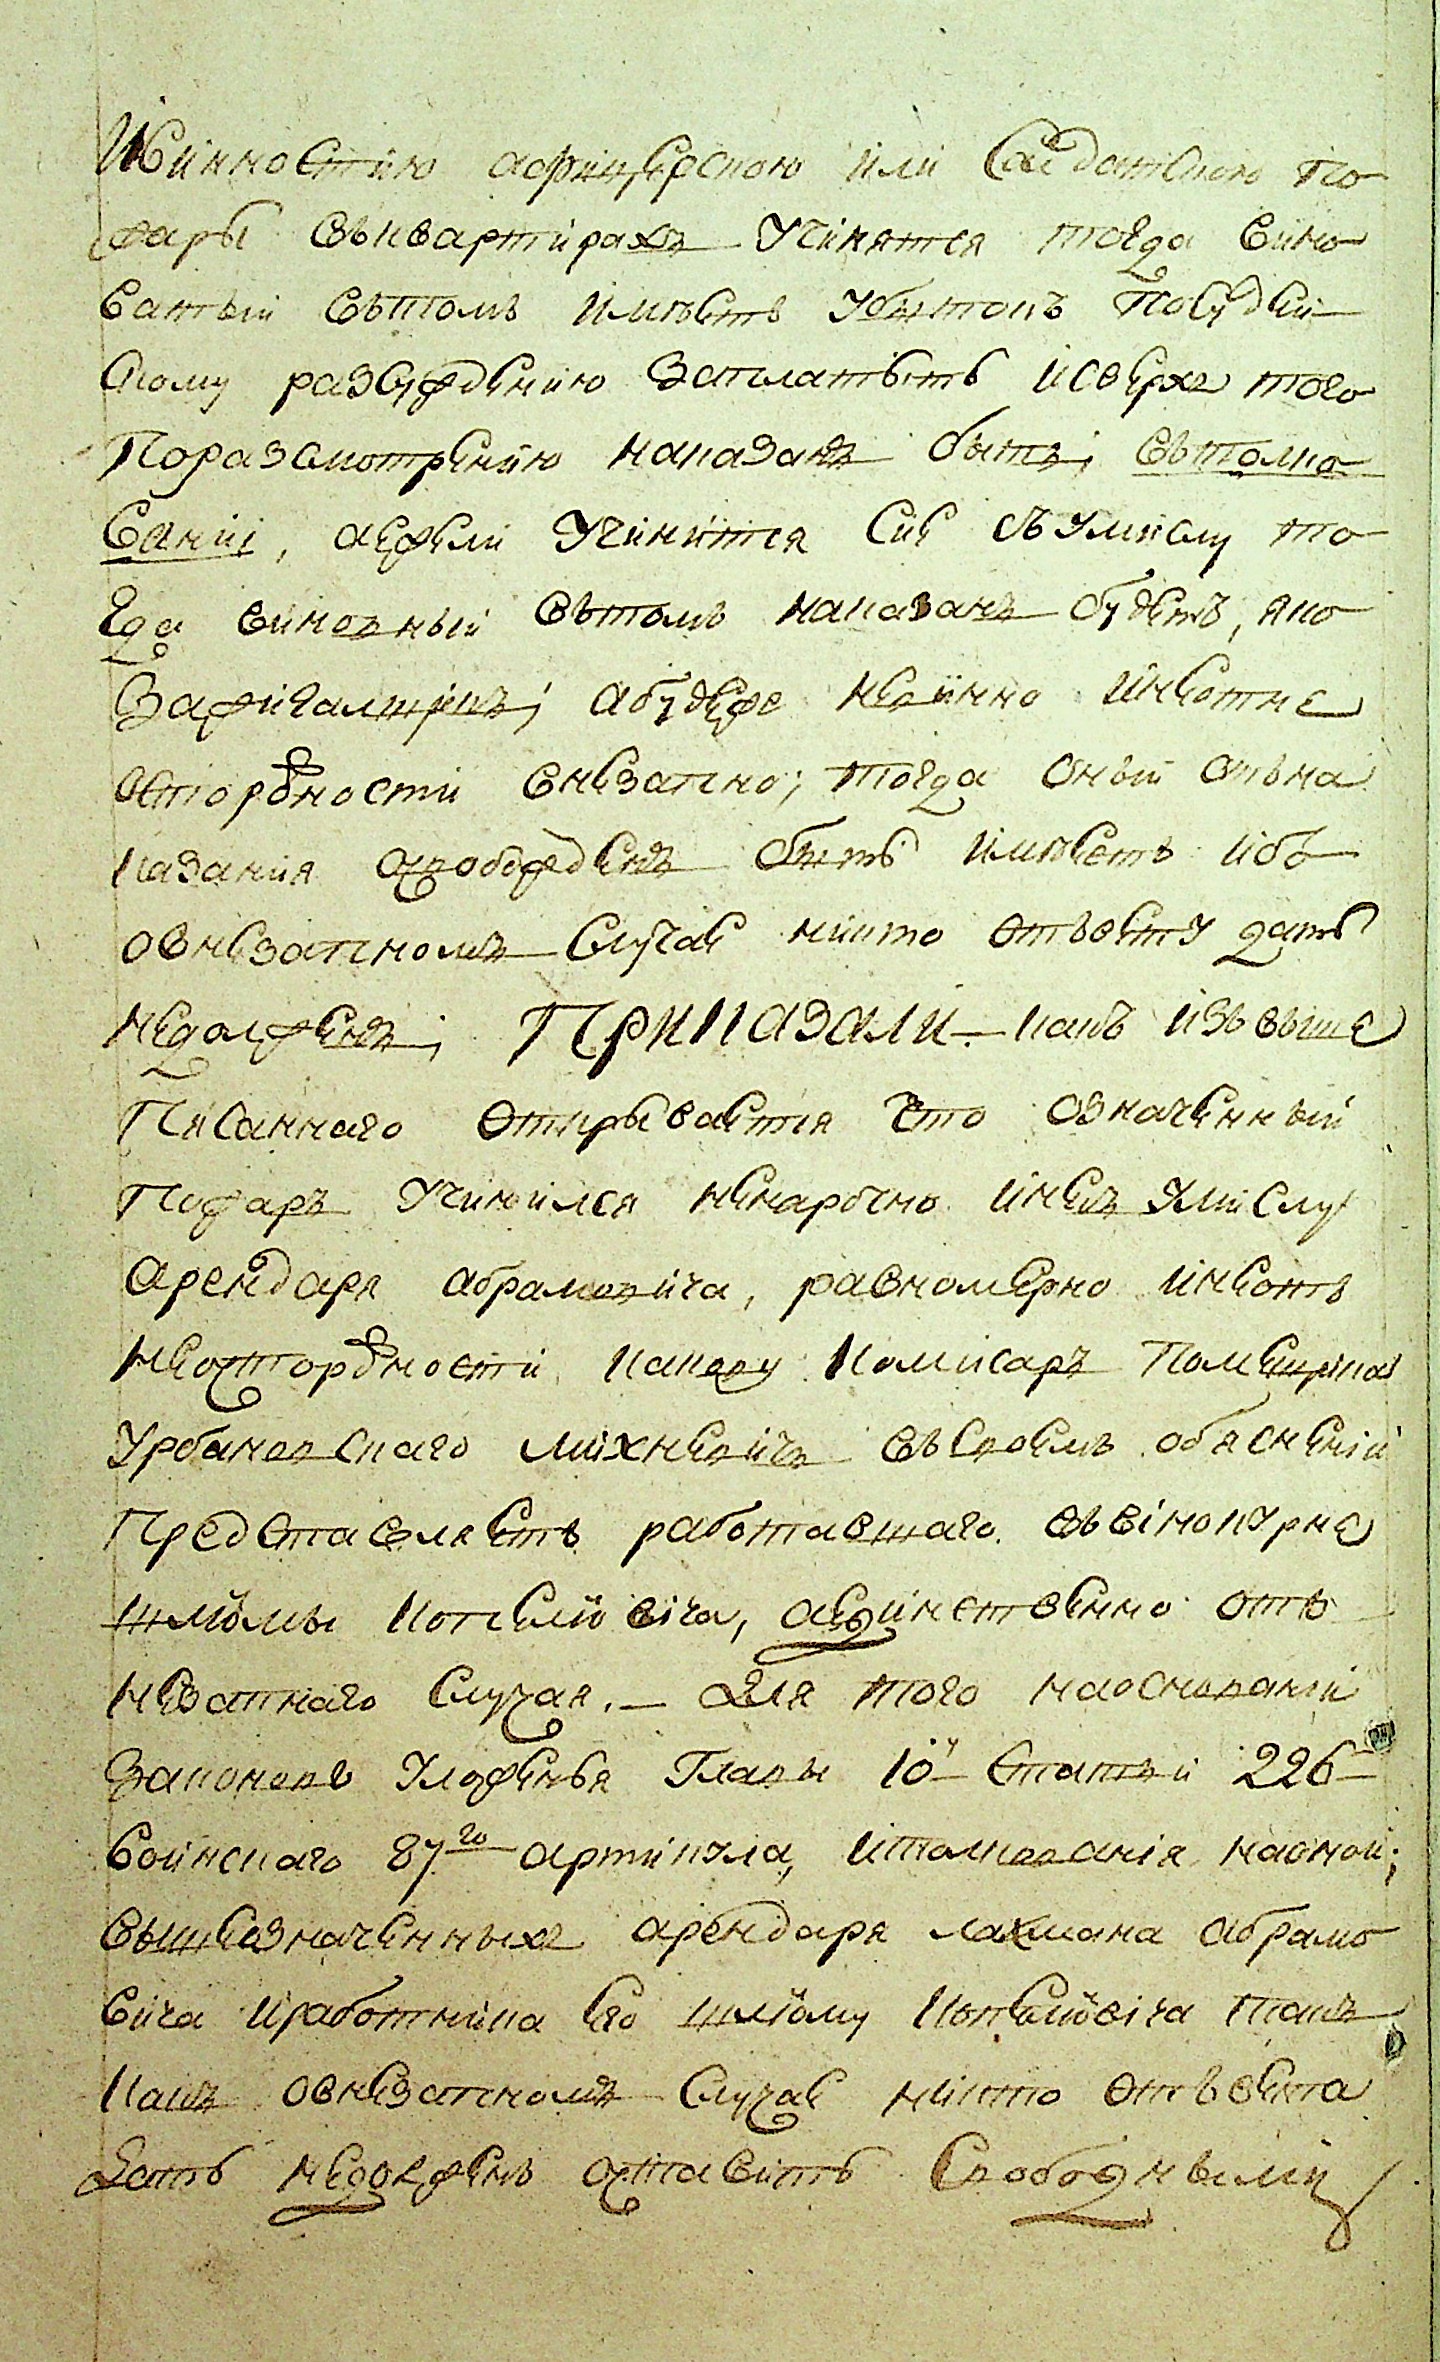 И винностию афицерскою или Салдатскою по
жары въквартирахъ Учинятся тогда вино
ватый вътомъ имѣетъ Убытокъ посудей
скому разсуждению Заплатить исверхъ того
Поразсмотрению наказанъ быть, вътолко
вании, аежели Учинится Сие съУмислу то
гда виновный вътомъ наказанъ будетъ, яко
Зажигалщикъ; абудеже невинно инеотне
осторожности внезапно; тогда оный отъна
казания освобожденъ быть имѣетъ ибо
овнезапномъ Случае никто отъвету дать
недолженъ; Приказали. какъ изъвыше
Писаннаго открывается что означенный
Пожаръ Учинился ненарочно инесъ Умислу
Арендаря абрамовича, равномерно инеотъ
неосторожности какову Комисаръ Помещика
Урбановскаго михневичъ въсвоемъ обяснении
Представляетъ работавшаго въвинокурне
шлиомы Копелиовича, аединственно отъ
незапнаго Случая. — Для того наоснований
Законовъ Уложенья Главы 10й Статьи 226
воинскаго 87го артикула, итолкования наоной;
вышеозначенныхъ арендаря лахмана абрамо
вича иработника его шлиому Копелиовича такъ
какъ овнезапномъ Случае никто отъвета
Дать недолженъ оставить Свободными